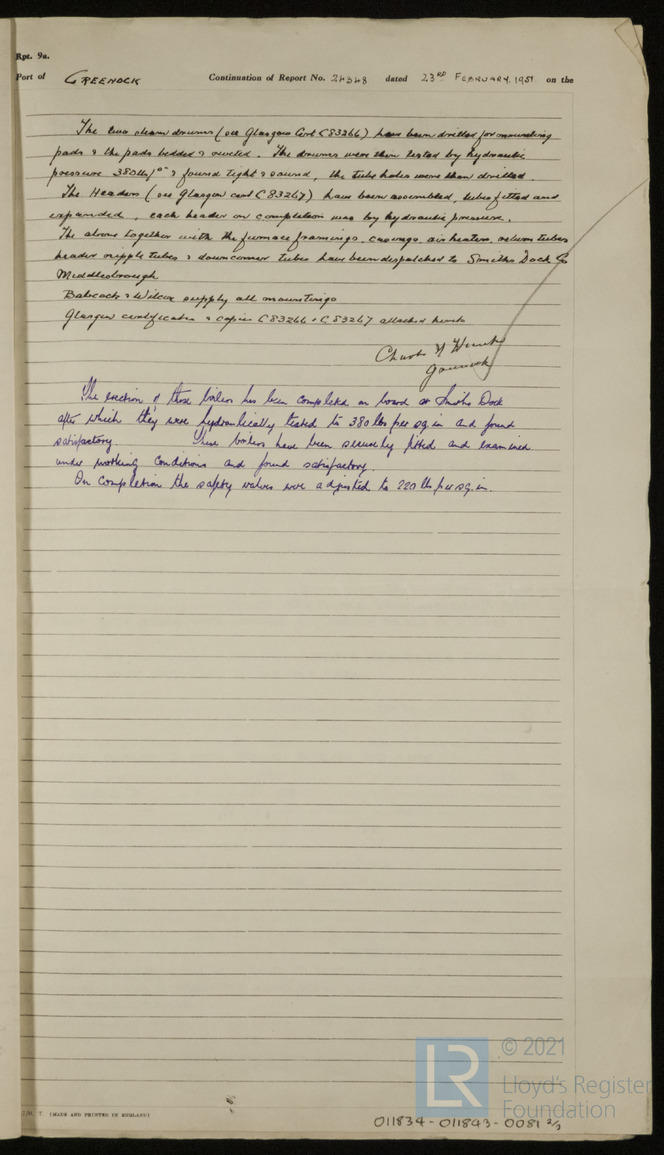 Rpt. 9a.
Port of GREENOCK Continuation of Report No. 24348 dated 23RD FEBRUARY, 1951 on the
The two steam drums (see Glasgow Cert C83266) have been drilled for mounting
pads & the pads bedded & riveted. The drums were then tested by hydraulic
pressure 380lbs/□" & found tight & sound, the tube holes were then drilled.
The Headers (see Glasgow cert C83267) have been assembled, tubes fitted and
expanded, each header on completion was by hydraulic pressure.
The above together with the furnace framings, casings, air heaters, return tubes
header nipple tubes & downcomer tubes have been despatched to Smiths Dock Co
Middlesbrough
Babcock & Wilcox supply all mountings
Glasgow certificates & copies C83266 & C83267 attached hereto
Charles
The erection of these boilers has been completed on board at Smiths Dock
after which they were hydraulically tested to 380 lbs per sq. in and found
satisfactory. These boilers have been securely fitted and examined
under working conditions and found satisfactory.
On completion the safety valves were adjusted to 220 lbs per sq. in.
© 2021
LR
Lloyd's Register
Foundation
(MADE AND PRINTED IN ENGLAND)
011834-011843-0081 2/3